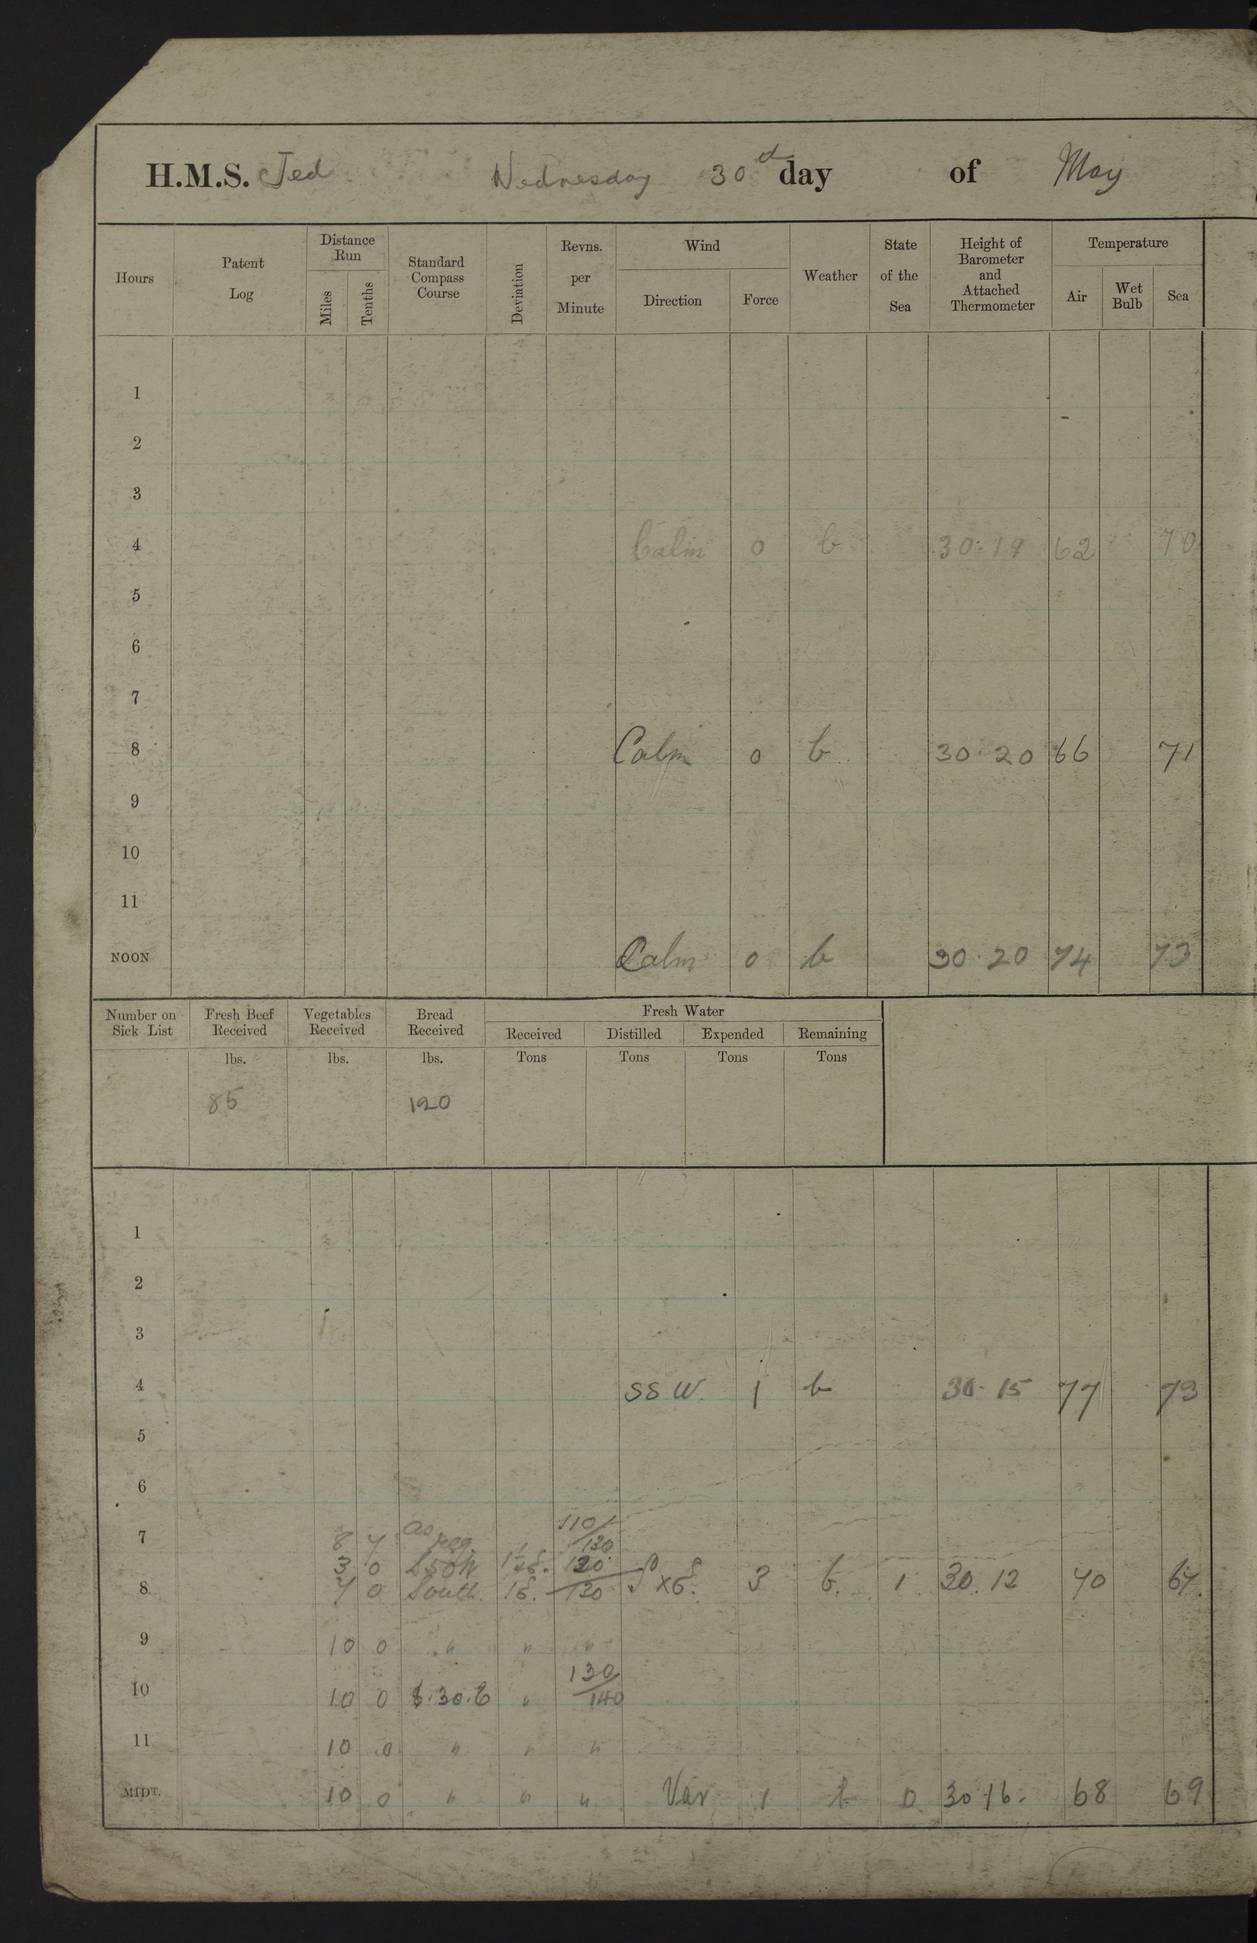 H.M.S. Jed Wednesday 30th day of May
Hours Patent Log Distance Run Miles Tenths Standard Compass Course Deviation Revns. per Minute Wind Direction Force Weather State of the Sea Height of Barometer and Attached Thermometer Temperature Air Wet Bulb Sea
1
2
3
4 Calm 0 b 30.19 62 70
5
6
7
8 Calm 0 b 30.20 66 71
9
10
11
NOON Calm 0 b 30.20 74 73
Number on Sick List Fresh Beef Received Vegetables Received Bread Received Fresh Water
Received Distilled Expended Remaining
lbs. lbs. lbs. Tons Tons Tons Tons
85 120
1
2
3
4 SSW. 1 b 30.15 77 73
5
6
7 8 7 as req. 110/130
3 0 120
8 7 0 South. 1E. 120 3 b. 1 30.12 70 67.
9 10 0 " " "
10 10 0 S.30.E " 130/140
11 10 0 " " "
MIDT. 10 0 " " " Var 1 b 0 30.16. 68 69